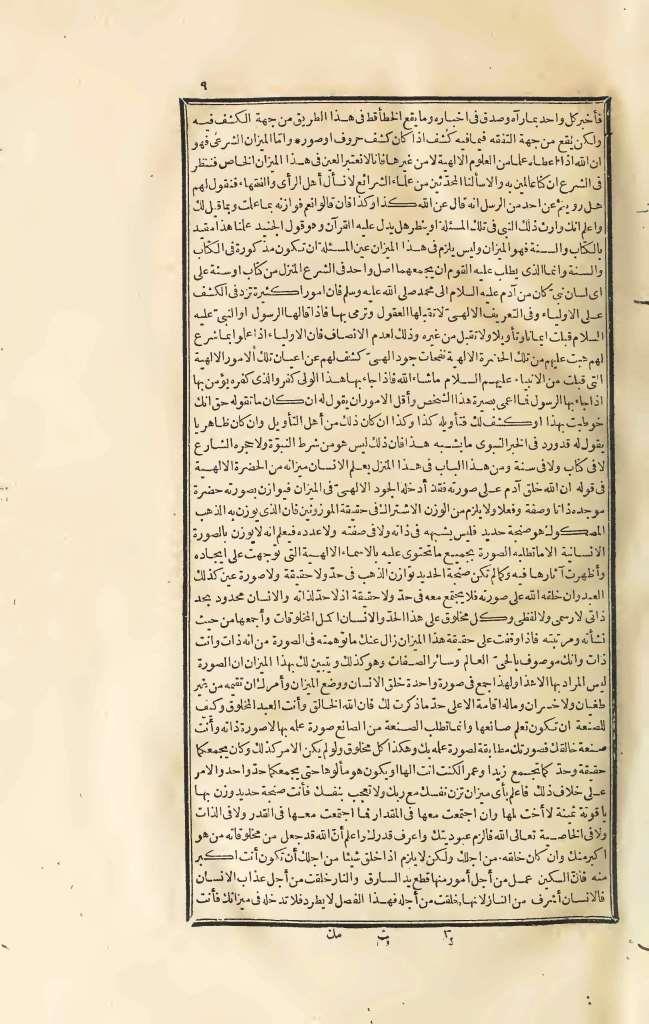 ٩
فأخبر كل واحد بما رآه وصدق فى اخباره وما يقع الخطأ قط فى هذا الطريق من جهة الكشف فيه
ولكن يقع من جهة التفقه فيما فيه كشف اذا كان كشف حروف او صور * وامّا الميزان الشرعىّ فهو
ان الله اذا اعطاك علما من العلوم الالهية لا من غيرها فانا لا نعتبر الغير فى هذا الميزان الخاص فننظر
فى الشرع ان كنا عالمين به والا سألنا المحدّثين من علماء الشرائع لا نسأل أهل الرأى والفقهاء فنقول لهم
هل رويتم عن احد من الرسل انه قال عن الله كذا وكذا فان قالوا نعم فوازنه بما علمت وبما قيل لك
واعلم انك وارث ذلك النبى فى تلك المسئلة او ننظر هل يدل عليه القرآن وهو قول الجنيد علمنا هذا مقيد
بالكتاب والسنة فهو الميزان وليس يلزم فى هذا الميزان عين المسئلة ان تكون مذكورة فى الكتاب
والسنة وانما الذى يطلب عليه القوم ان يجمعهما اصل واحد فى الشرع المنزل من كتاب او سنة على
اى لسان نبىّ كان من آدم عليه السلام الى محمد صلى الله عليه وسلم فان امورا كثيرة ترد فى الكشف
على الاولياء وفى التعريف الالهىّ لا تقبلها العقول وترمى بها فاذا قالها الرسول او النبىّ عليه
السلام قبلت ايمانا وتأويلا ولا تقبل من غيره وذلك لعدم الانصاف فان الاولياء اذا عملوا بما شرع
لهم هبت عليهم من تلك الحضرة الالهية نفحات جود الهىّ كشف لهم عن اعيان تلك الامور الالهية
التى قبلت من الانبياء عليهم السلام ما شاء الله فاذا جاء بها هذا الولى كفر والذى كفره يؤمن بها
اذا جاء بها الرسول فما اعمى بصيرة هذا الشخص وأقل الامور ان يقول له ان كان ما تقوله حق انك
خوطبت بهذا او كشف لك فتأويله كذا وكذا ان كان ذلك من أهل التأويل وان كان ظاهريا
يقول له قد ورد فى الخبر النبوى ما يشبه هذا فان ذلك ليس هو من شرط النبوّة ولا حجره الشارع
لا فى كتاب ولا فى سنة ومن هذا الباب فى هذا المنزل يعلم الانسان ميزانه من الحضرة الالهية
فى قوله ان الله خلق آدم على صورته فقد أدخله الجود الالهىّ فى الميزان فيوازن بصورته حضرة
موجده ذاتا وصفة وفعلا ولا يلزم من الوزن الاشتراك فى حقيقة الموزونين فان الذى يوزن به الذهب
المسكوك هو صنجة حديد فليس يشبهه فى ذاته ولا فى صفته ولا عدده فيعلم انه لا يوزن بالصورة
الانسانية الا ما تطلبه الصورة بجميع ما تحتوى عليه بالاسماء الالهية التى توجهت على ايجاده
وأظهرت آثارها فيه وكما لم تكن صنجة الحديد توازن الذهب فى حدّ ولا حقيقة ولا صورة عين كذلك
العبد وان خلقه الله على صورته فلا يجتمع معه فى حدّ ولا حقيقة اذ لا حدّ لذاته والانسان محدود بحد
ذاتى لا رسمى ولا لفظى وكل مخلوق على هذا الحدّ والانسان اكمل المخلوقات وأجمعها من حيث
نشأته ومرتبته فاذا وقفت على حقيقة هذا الميزان زال عنك ما توهمته فى الصورة من انه ذات وانت
ذات وانك موصوف بالحىّ العالم وسائر الصفات وهو كذلك ويتبين لك بهذا الميزان ان الصورة
ليس المراد بها الا هذا ولهذا جمع فى صورة واحدة خلق الانسان ووضع الميزان وأمرك ان تقيمه من غير
طغيان ولا خسران وما له اقامة الا على حدّ ما ذكرت لك فان الله الخالق وأنت العبد المخلوق وكيف
للصنعة ان تكون تعلم صانعها وانما تطلب الصنعة من الصانع صورة علمه بها لا صورة ذاته وأنت
صنعة خالقك فصورتك مطابقة لصورة علمه بك وهكذا كل مخلوق ولو لم يكن الامر كذلك وكان يجمعكما
حقيقة وحدّ كما يجمع زيدا وعمرا لكنت انت الها او يكون هو مألوها حتى يجمعكما حدّ واحد والامر
على خلاف ذلك فاعلم بأى ميزان تزن نفسك مع ربك ولا تعجب بنفسك فأنت صنجة حديد وزن بها
ياقوتة ثمينة لا أخت لها وان اجتمعت معها فى المقدار فما اجتمعت معها فى القدر ولا فى الذات
ولا فى الخاصية تعالى الله فالزم عبوديتك واعرف قدرك واعلم أنّ الله قد جعل من مخلوقاته من هو
اكبر منك وان كان خلقه من اجلك ولكن لا يلزم اذا خلق شيئا من اجلك أن تكون أنت اكبر
منه فانّ السكين عمل من أجل أمور منها قطع يد السارق والنار خلقت من أجل عذاب الانسان
فالانسان أشرف من النار لانها خلقت من أجله فهذا الفصل لا يطرد فلا تدخله فى ميزانك فأنت